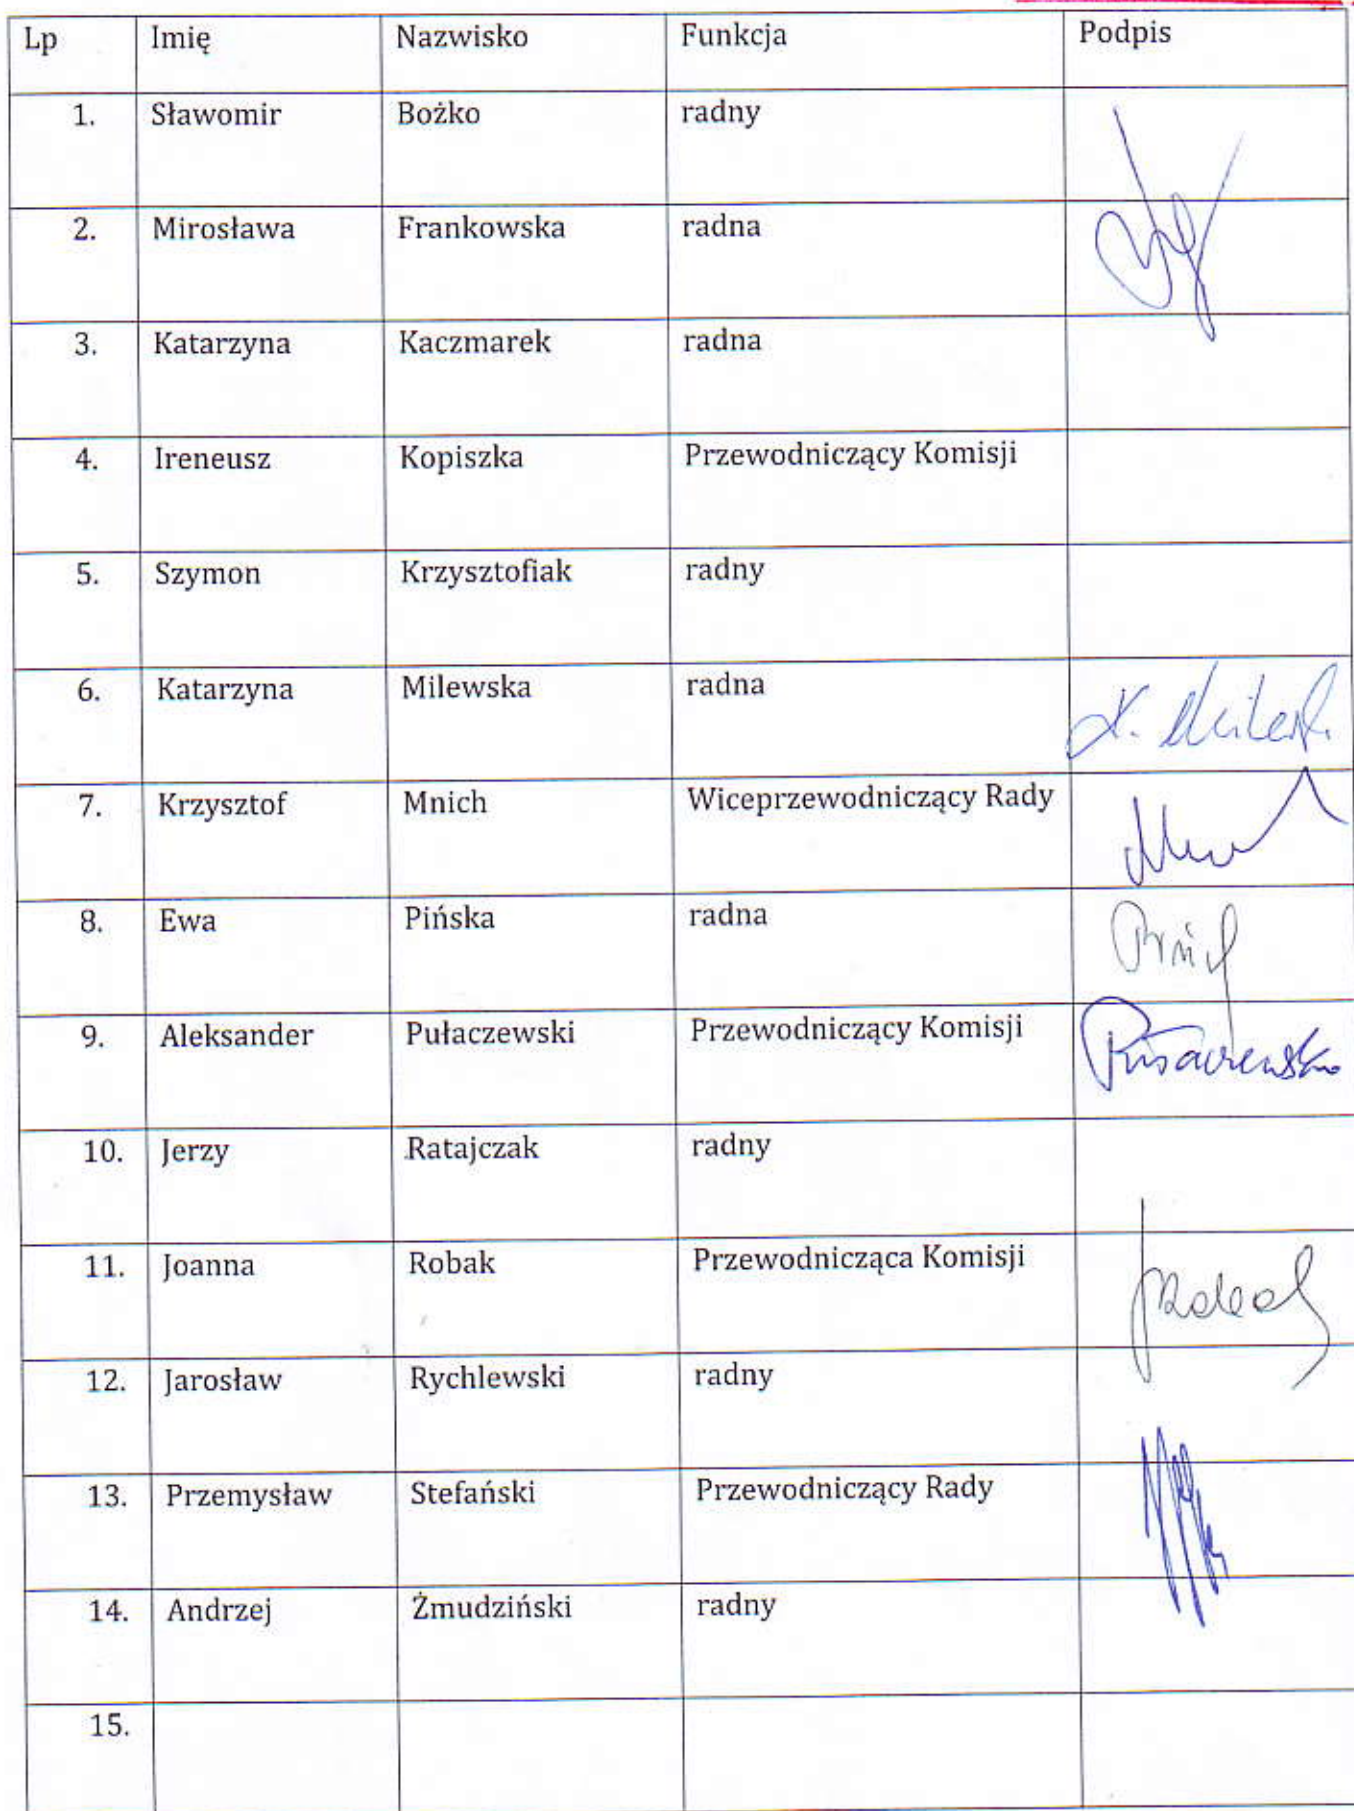 Lp Imię Nazwisko Funkcja Podpis
1. Sławomir Bożko radny
2. Mirosława Frankowska radna
3. Katarzyna Kaczmarek radna
4. Ireneusz Kopiszka Przewodniczący Komisji
5. Szymon Krzysztofiak radny
6. Katarzyna Milewska radna
7. Krzysztof Mnich Wiceprzewodniczący Rady
8. Ewa Pińska radna
9. Aleksander Pułaczewski Przewodniczący Komisji
10. Jerzy Ratajczak radny
11. Joanna Robak Przewodnicząca Komisji
12. Jarosław Rychlewski radny
13. Przemysław Stefański Przewodniczący Rady
14. Andrzej Żmudziński radny
15.